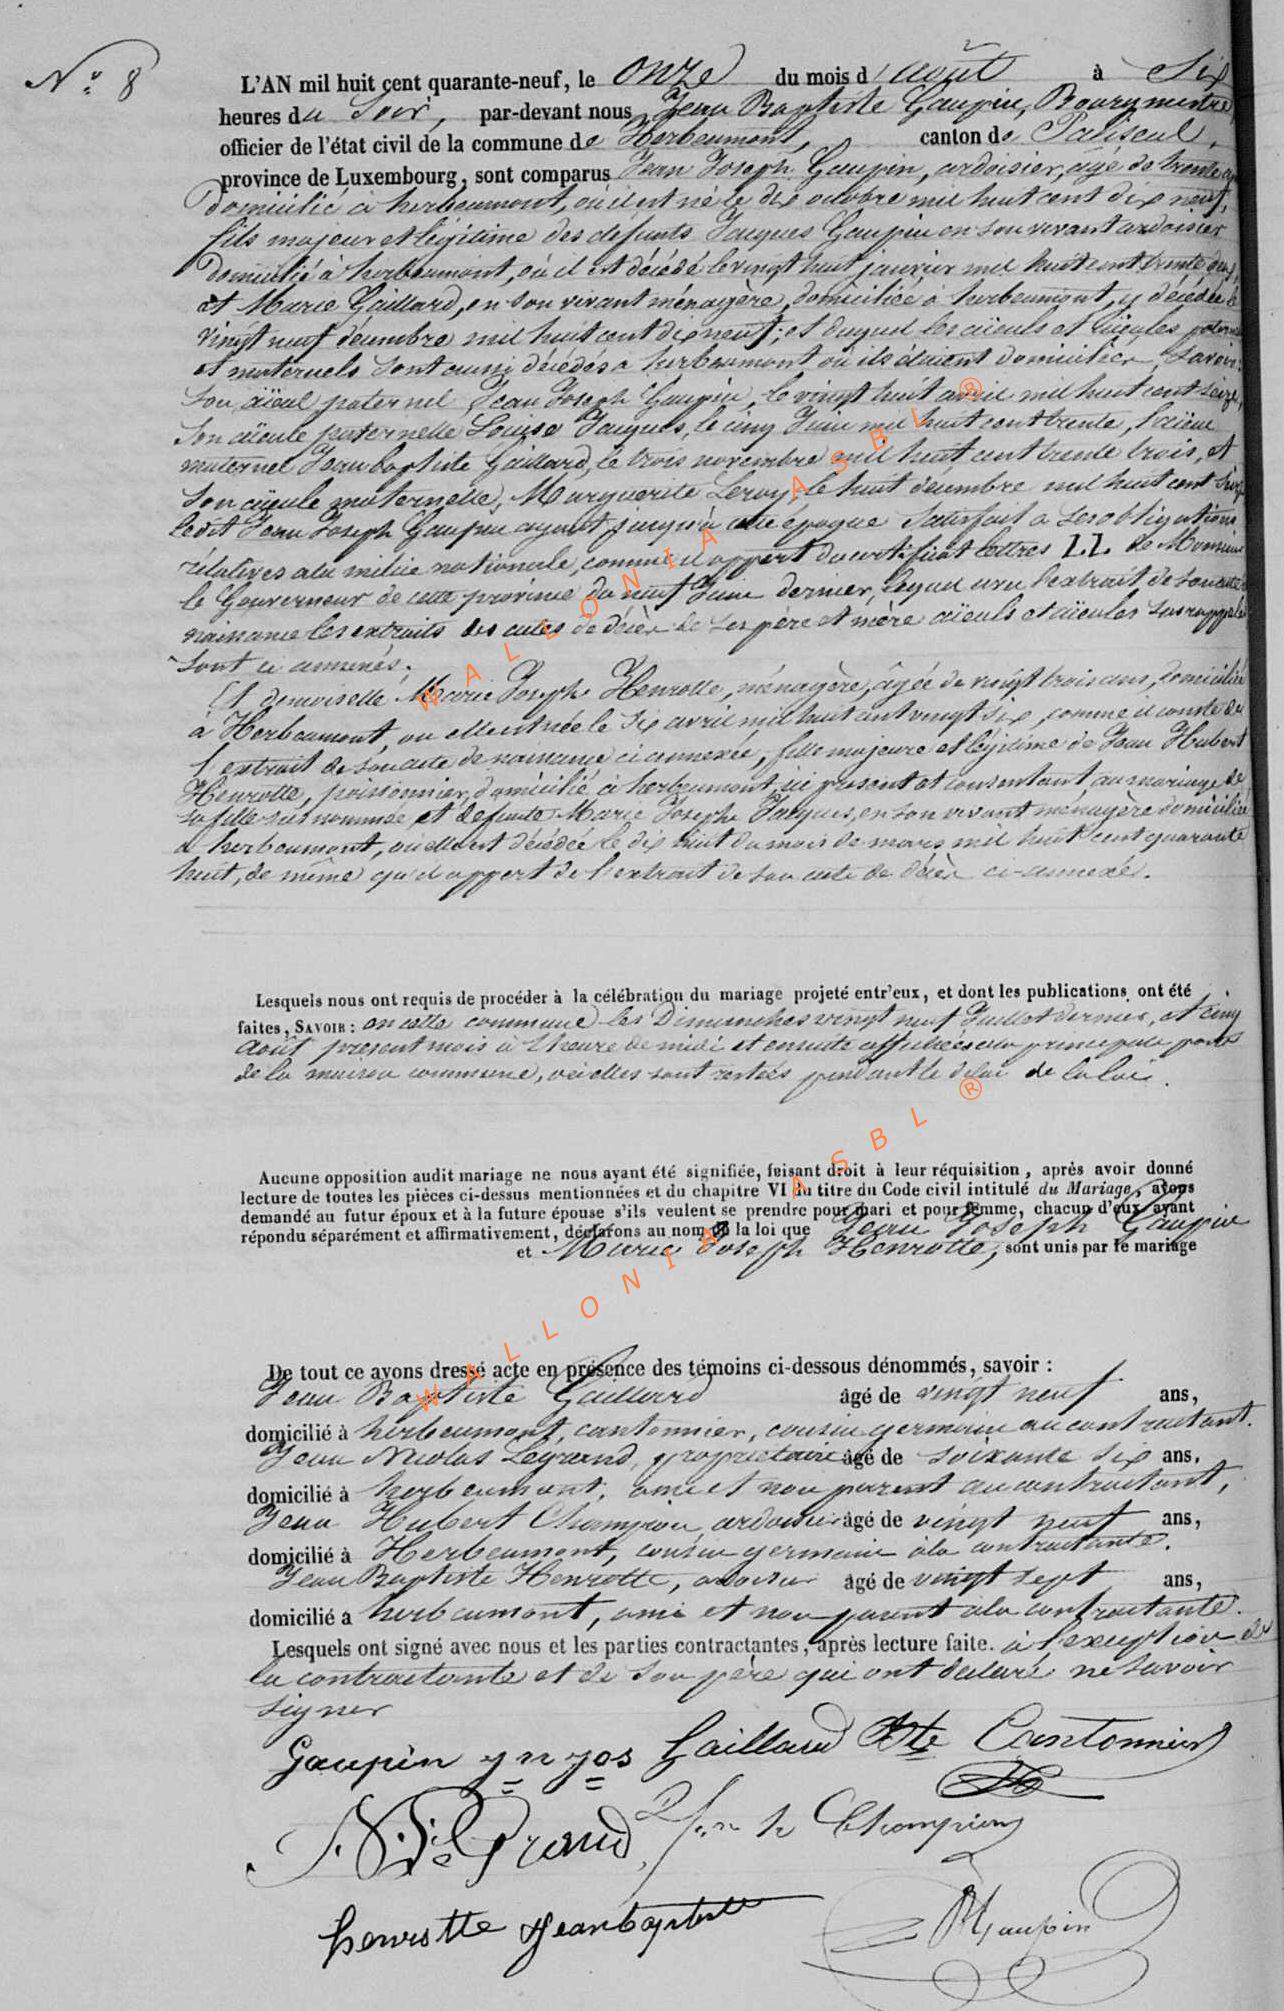 N.o 8
L'AN mil huit cent quarante-neuf, le onze du mois d'août à Six
heures du Soir, par-devant nous Jean Baptiste Gaupin, Bourgmestre,
officier de l'état civil de la commune de Herbeumont, canton de Paliseul,
province de Luxembourg, sont comparus Jean Joseph Gaupin, ardoisier, âgé de trente ans
domicilié à herbeumont, où il est né le dix octobre mil huit cent dix neuf,
fils majeur et légitime des défunts Jacques Gaupin en son vivant ardoisier
domicilié à herbeumont, où il est décédé le vingt huit janvier mil huit cent trente deux,
et Marie Gaillard, en son vivant ménagère, domiciliée à herbeumont, y décédée le
vingt neuf décembre mil huit cent dix neuf; et duquel les aïeuls et aïeules paternels
et maternels sont aussi décédés à herbeumont où ils étaient domiciliés, Savoir:
Son aïeul paternel Jean Joseph Gaupin, le vingt huit avril mil huit cent seize,
Son aïeule paternelle Louise Jacques, le cinq Juin mil huit cent trente, l'aïeul
maternel Jean baptiste Gaillard, le trois novembre mil huit cent trente trois, et
Son aïeule maternelle, Marguerite Leroy, le huit décembre mil huit cent
ledit Jean Joseph Gaupin ayant jusqu'à cette époque Satisfait à ses obligations
rélatives à la milice nationale, comme il appert du certificat lettres LL de Monsieur
le Gouverneur de cette province du neuf Juin dernier, lequel avec l'extrait de son acte de
naissance les extraits des actes de décès de ses père et mère aïeuls et aïeules susrappelés
sont ci annexés.
Et demoiselle Marie Joseph Henrotte, ménagère, âgée de vingt trois ans, domiciliée
à Herbeumont, où elle est née le six avril mil huit cent vingt six, comme il conste de
l'extrait de son acte de naissance ci annexée, fille majeure et légitime de Jean Hubert
Henrotte, poissonnier, domicilié à herbeumont, ici présent et consentant au mariage de
sa fille susnommée, et défunte Marie Joseph Jacques, en son vivant ménagère domiciliée
à herbeumont, où elle est décédée le dix huit du mois de mars mil huit cent quarante
huit, de même qu'il appert de l'extrait de son acte de décès ci-annexé.
Lesquels nous ont requis de procéder à la célébration du mariage projeté entr'eux, et dont les publications ont été
faites, SAVOIR: en cette commune les Dimanches vingt neuf Juillet dernier, et cinq
Août présent mois à l'heure de midi et ensuite affichées à la principale porte
de la maison commune, où elles sont restées pendant le délai de la loi.
Aucune opposition audit mariage ne nous ayant été signifiée, faisant droit à leur réquisition, après avoir donné
lecture de toutes les pièces ci-dessus mentionnées et du chapitre VI du titre du Code civil intitulé du Mariage, avons
demandé au futur époux et à la future épouse s'ils veulent se prendre pour mari et pour femme, chacun d'eux ayant
répondu séparément et affirmativement, déclarons au nom de la loi que Jean Joseph Gaupin
et Marie Joseph Henrotte, sont unis par le mariage
De tout ce avons dressé acte en présence des témoins ci-dessous dénommés, savoir:
Jean Baptiste Gaillard âgé de vingt neuf ans,
domicilié à herbeumont, cantonnier, cousin germain au contractant.
Jean Nicolas Legrand, propriétaire âgé de soixante six ans.
domicilié à herbeumont, ami et non parent au contractant,
Jean Hubert Champion, ardoisier âgé de vingt neuf ans,
domicilié à Herbeumont, cousin germain à la contractante.
Jean Baptiste Henrotte, ardoisier âgé de vingt sept ans,
domicilié à herbeumont, ami et non parent à la contractante.
Lesquels ont signé avec nous et les parties contractantes, après lecture faite. à l'exception de
la contractante et de son père qui ont déclaré ne savoir
signer
Gaupin jn jos Gaillard Bte Cantonnier
LeGrand h Champion
henrotte Jean baptiste Gaupin
WALLONIA ASBL ®
WALLONIA ASBL ®